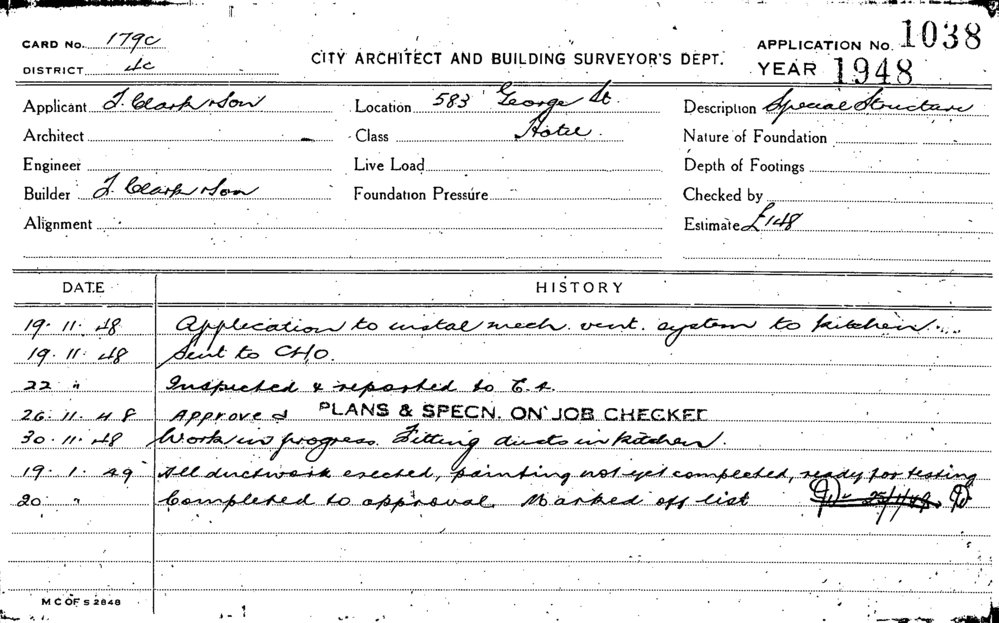 CARD No. 179C
DISTRICT 4C
CITY ARCHITECT AND BUILDING SURVEYOR'S DEPT.
APPLICATION No. 1038
YEAR 1948
Applicant J. Clark & Son Location 583 George St. Description Special Structure
Architect Class Hotel Nature of Foundation
Engineer Live Load Depth of Footings
Builder J. Clark & Son Foundation Pressure Checked by
Alignment Estimate £148
DATE HISTORY
19.11.48 Application to instal mech. vent. system to kitchen.
19.11.48 Sent to CHO.
22 " Inspected & reported to C.A.
26.11.48 Approved PLANS & SPECN. ON JOB CHECKED
30.11.48 Work in progress. Fitting ducts in kitchen.
19.1.49 All ductwork erected, painting not yet completed, ready for testing
20 " Completed to approval. Marked off list
M C OF S 2848